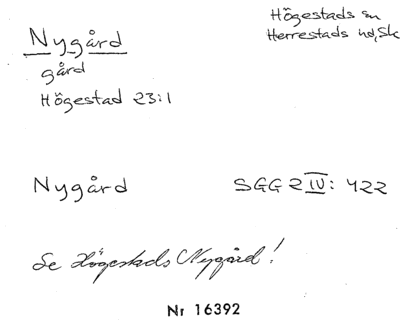 Nygård
Högestads sn
Herrestads hd, Sk
gård
Högestad 23:1
Nygård SGG 2 IV: 422
Se Högestads Nygård!
Nr 16392